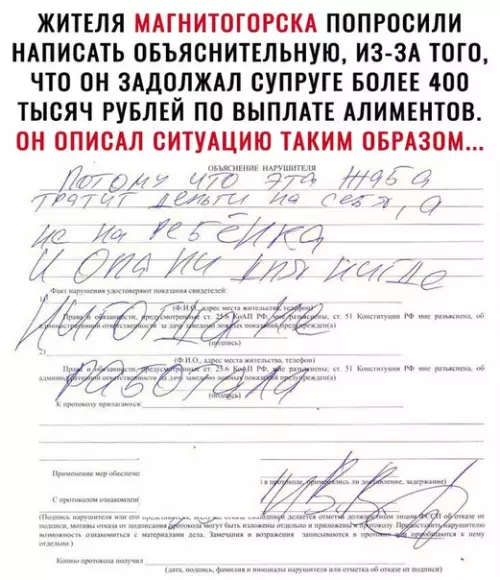 ЖИТЕЛЯ МАГНИТОГОРСКА ПОПРОСИЛИ
НАПИСАТЬ ОБЪЯСНИТЕЛЬНУЮ, ИЗ-ЗА ТОГО,
ЧТО ОН ЗАДОЛЖАЛ СУПРУГЕ БОЛЕЕ 400
ТЫСЯЧ РУБЛЕЙ ПО ВЫПЛАТЕ АЛИМЕНТОВ.
ОН ОПИСАЛ СИТУАЦИЮ ТАКИМ ОБРАЗОМ...
ОБЪЯСНЕНИЕ НАРУШИТЕЛЯ
Потому что эта жаба
тратит деньги на себя, а
не на ребёнка
и она ни дня нигде
Факт нарушения удостоверяют показания свидетелей:
1)
никогда не
(Ф.И.О., адрес места жительства, телефон)
Права и обязанности, предусмотренные ст. 25.6 КоАП РФ, мне разъяснены, ст. 51 Конституции РФ мне разъяснена, об
административной ответственности за дачу заведомо ложных показаний предупрежден(а)
(подпись)
2)
(Ф.И.О., адрес места жительства, телефон)
Права и обязанности, предусмотренные ст. 25.6 КоАП РФ, мне разъяснены, ст. 51 Конституции РФ мне разъяснена, об
административной ответственности за дачу заведомо ложных показаний предупрежден(а)
работала
(подпись)
К протоколу прилагаются:
Применение мер обеспече
в протоколе, применялись ли доставление, задержание)
С протоколом ознакомлен(
(Подпись нарушителя или его делается отметка должностным лицом ФССП об отказе от
подписи, мотивы отказа от подписания протокола могут быть изложены отдельно и приложены к протоколу. Предоставить нарушителю
возможность ознакомиться с материалами дела. Замечания и возражения записываются в протокол или приобщаются к нему
отдельно).
Копию протокола получил
(дата, подпись, фамилия и инициалы нарушителя или отметка об отказе от подписи)